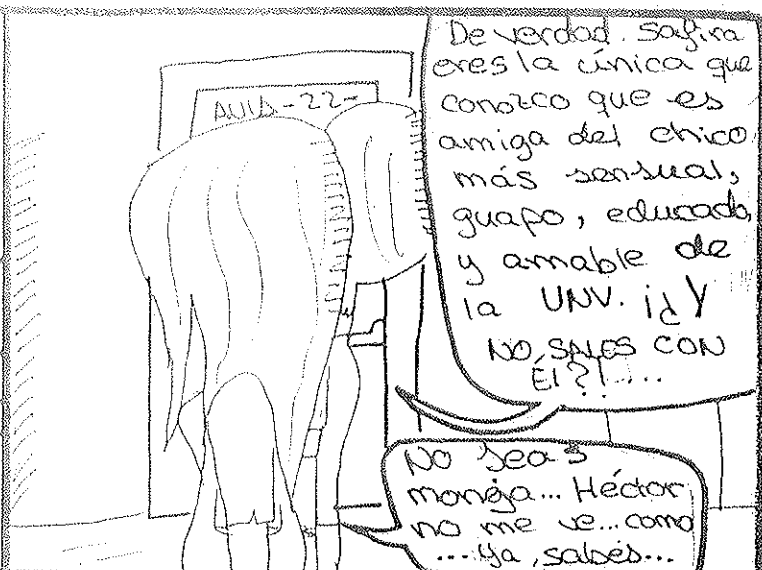 AULA-22-
De verdad. Safira
eres la única que
conozco que es
amiga del chico
más sensual,
guapo, educado,
y amable de
la UNV. ¡¿Y
NO SALES CON
ÉL?!....
NO seas
monga... Héctor
no me ve... como
... ya, sabés...